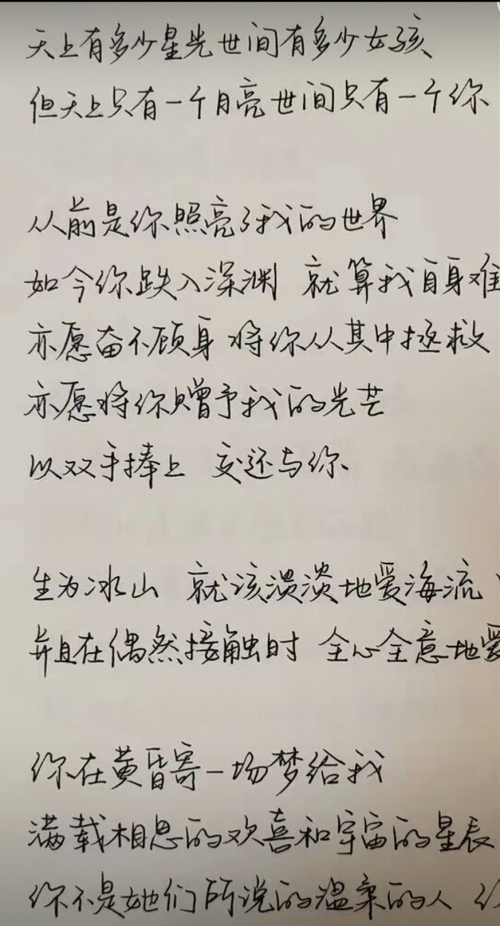 天上有多少星光世间有多少女孩
但天上只有一个月亮世间只有一个你
从前是你照亮了我的世界
如今你跌入深渊 就算我自身难
亦愿奋不顾身 将你从其中拯救
亦愿将你赠予我的光芒
以双手捧上 交还与你
生为冰山 就该淡淡地爱海流
并且在偶然接触时 全心全意地爱
你在黄昏寄一场梦给我
满载相思的欢喜和宇宙的星辰
你不是她们所说的温柔的人